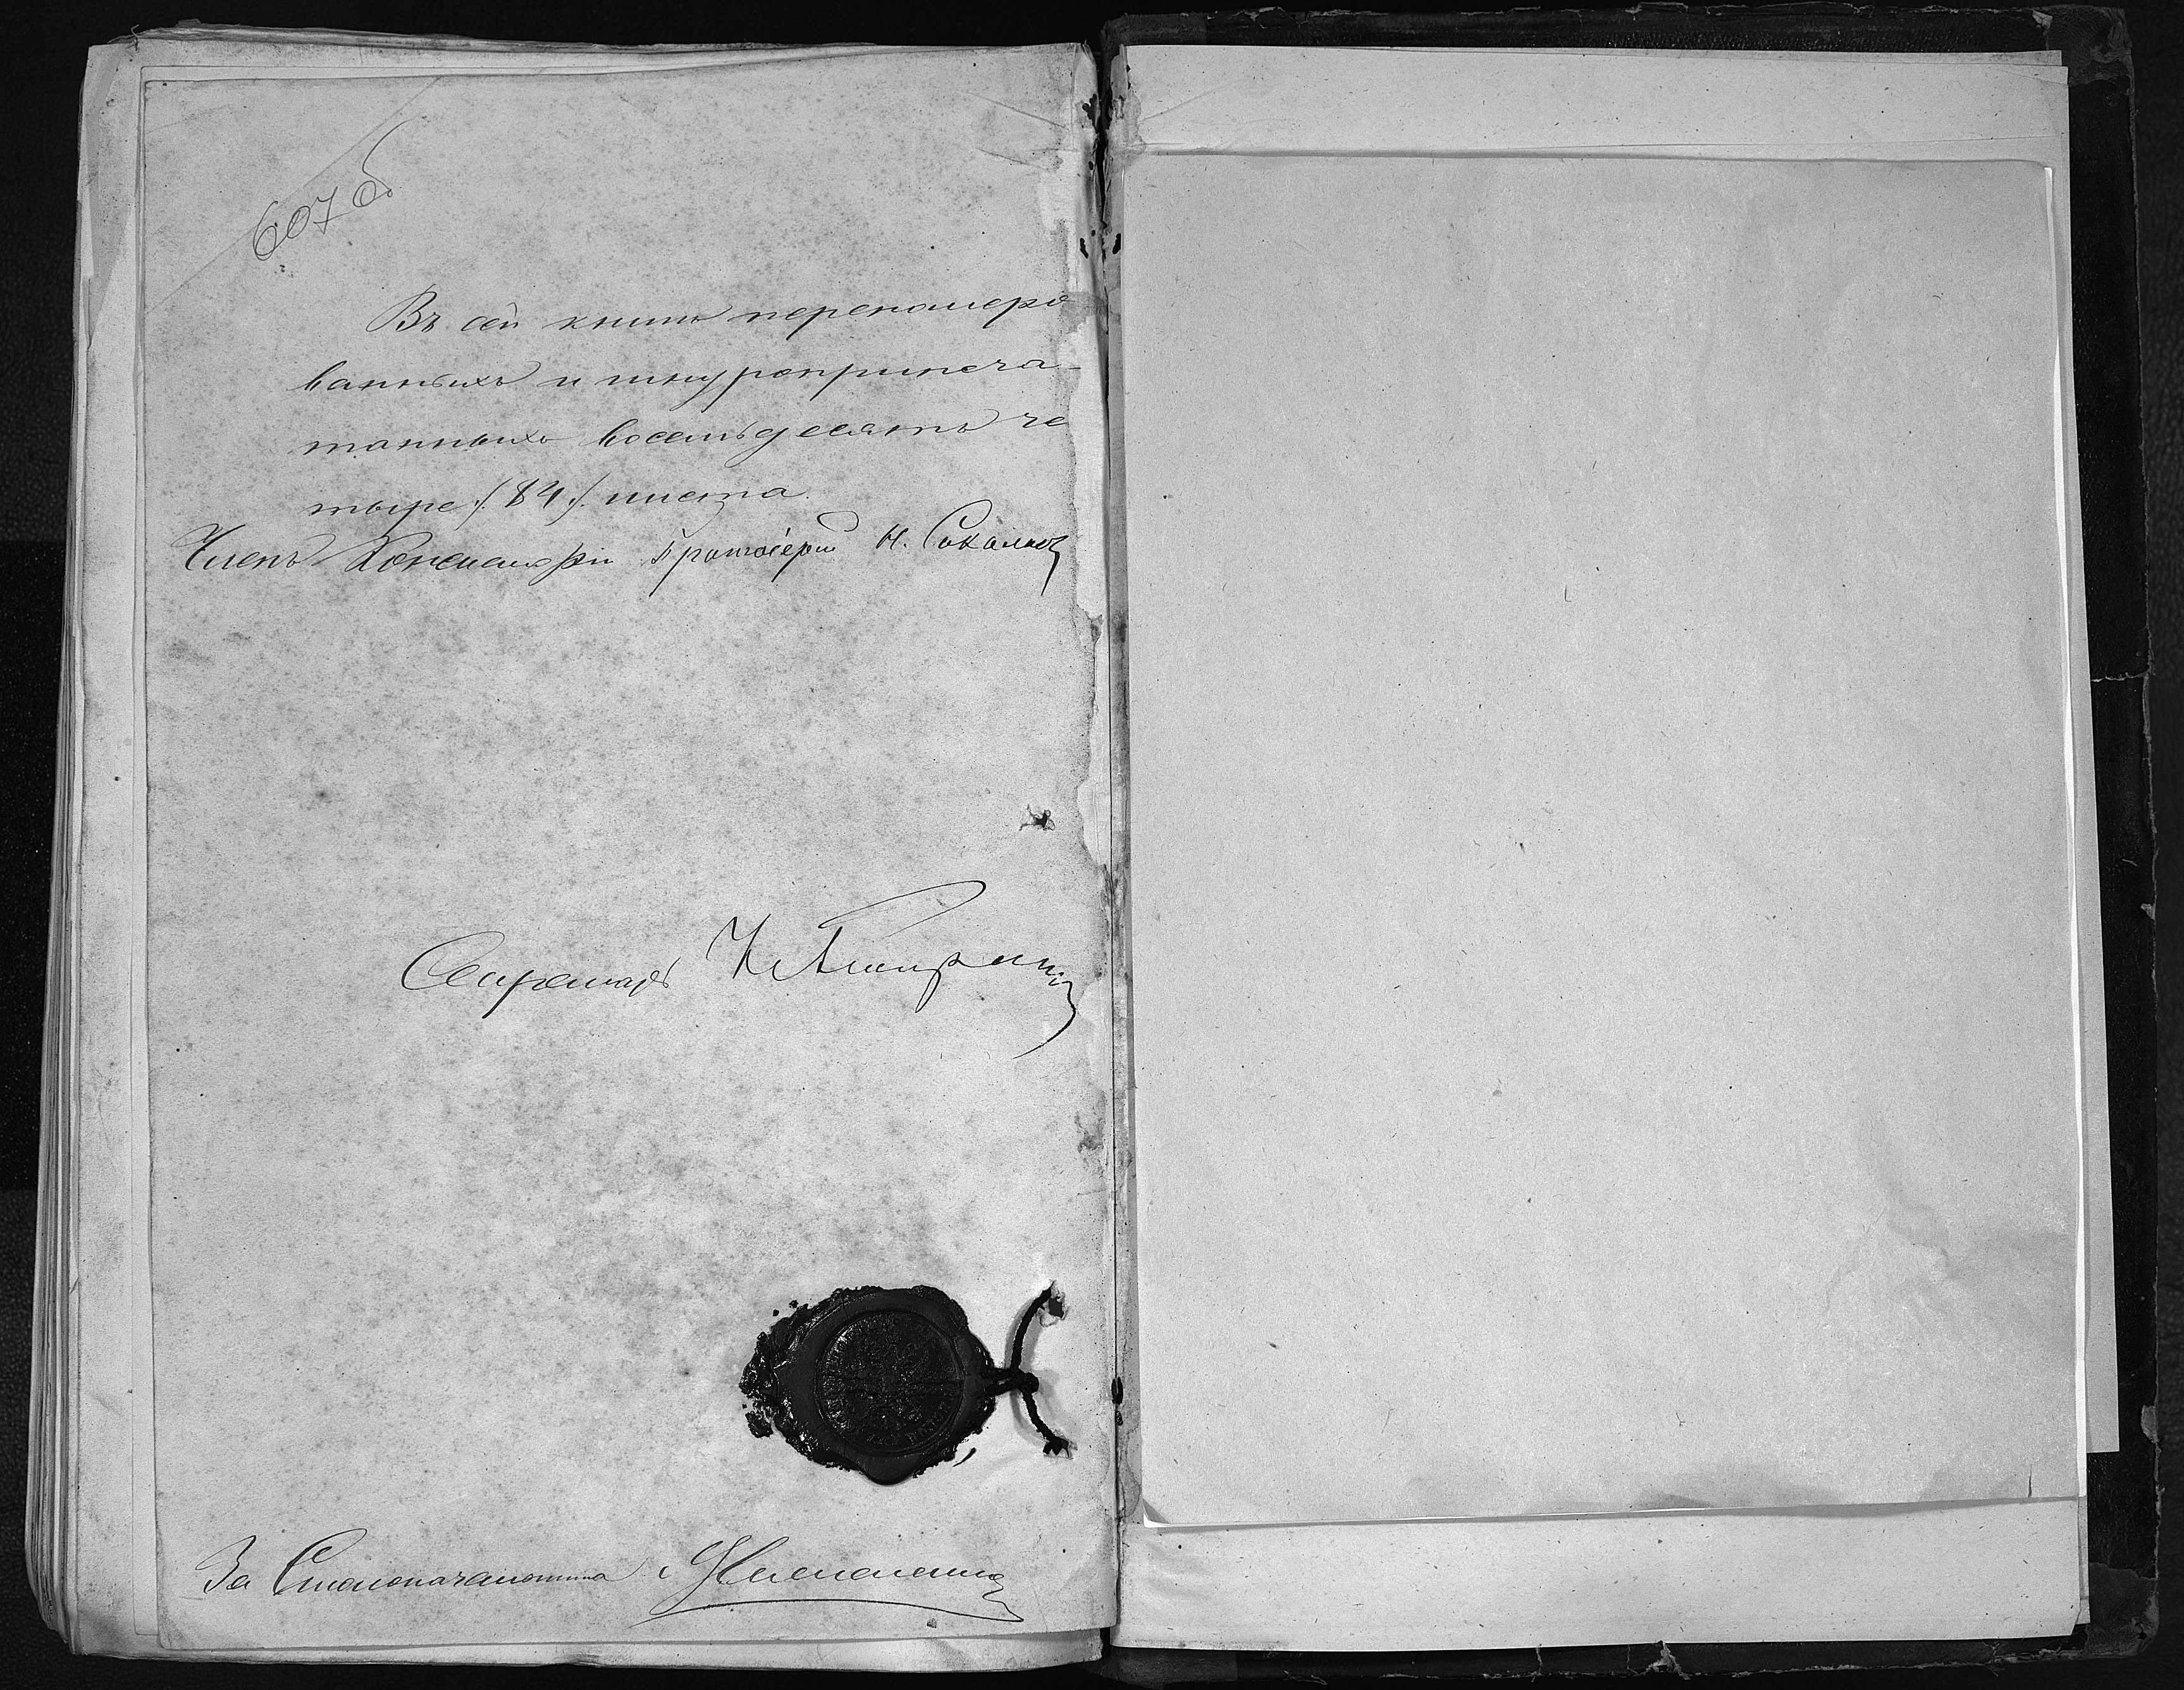 607 об
Въ сей книгѣ перенумеро
ванныхъ и шнуроприпеча-
танныхъ восемьдесятъ че
тыре /84/ листа.
Членъ Консисторіи Протоіерей Н. Соколовъ
Секретарь
За Столоначальника